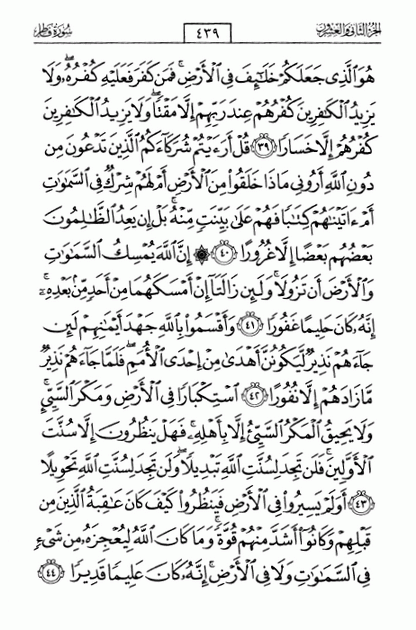 الجزء الثاني والعشرون ٤٣٩ سورة فاطر
هُوَ ٱلَّذِى جَعَلَكُمْ خَلَٰٓئِفَ فِى ٱلْأَرْضِ ۚ فَمَن كَفَرَ فَعَلَيْهِ كُفْرُهُۥ ۖ وَلَا
يَزِيدُ ٱلْكَٰفِرِينَ كُفْرُهُمْ عِندَ رَبِّهِمْ إِلَّا مَقْتًا ۖ وَلَا يَزِيدُ ٱلْكَٰفِرِينَ
كُفْرُهُمْ إِلَّا خَسَارًا ٣٩ قُلْ أَرَءَيْتُمْ شُرَكَآءَكُمُ ٱلَّذِينَ تَدْعُونَ مِن
دُونِ ٱللَّهِ أَرُونِى مَاذَا خَلَقُوا۟ مِنَ ٱلْأَرْضِ أَمْ لَهُمْ شِرْكٌ فِى ٱلسَّمَٰوَٰتِ
أَمْ ءَاتَيْنَٰهُمْ كِتَٰبًا فَهُمْ عَلَىٰ بَيِّنَتٍ مِّنْهُ ۚ بَلْ إِن يَعِدُ ٱلظَّٰلِمُونَ
بَعْضُهُم بَعْضًا إِلَّا غُرُورًا ٤٠ ۞ إِنَّ ٱللَّهَ يُمْسِكُ ٱلسَّمَٰوَٰتِ
وَٱلْأَرْضَ أَن تَزُولَا ۚ وَلَئِن زَالَتَآ إِنْ أَمْسَكَهُمَا مِنْ أَحَدٍ مِّنۢ بَعْدِهِۦٓ ۚ
إِنَّهُۥ كَانَ حَلِيمًا غَفُورًا ٤١ وَأَقْسَمُوا۟ بِٱللَّهِ جَهْدَ أَيْمَٰنِهِمْ لَئِن
جَآءَهُمْ نَذِيرٌ لَّيَكُونُنَّ أَهْدَىٰ مِنْ إِحْدَى ٱلْأُمَمِ ۖ فَلَمَّا جَآءَهُمْ نَذِيرٌ
مَّا زَادَهُمْ إِلَّا نُفُورًا ٤٢ ٱسْتِكْبَارًا فِى ٱلْأَرْضِ وَمَكْرَ ٱلسَّيِّئِ ۚ
وَلَا يَحِيقُ ٱلْمَكْرُ ٱلسَّيِّئُ إِلَّا بِأَهْلِهِۦ ۚ فَهَلْ يَنظُرُونَ إِلَّا سُنَّتَ
ٱلْأَوَّلِينَ ۚ فَلَن تَجِدَ لِسُنَّتِ ٱللَّهِ تَبْدِيلًا ۖ وَلَن تَجِدَ لِسُنَّتِ ٱللَّهِ تَحْوِيلًا
٤٣ أَوَلَمْ يَسِيرُوا۟ فِى ٱلْأَرْضِ فَيَنظُرُوا۟ كَيْفَ كَانَ عَٰقِبَةُ ٱلَّذِينَ مِن
قَبْلِهِمْ وَكَانُوٓا۟ أَشَدَّ مِنْهُمْ قُوَّةً ۚ وَمَا كَانَ ٱللَّهُ لِيُعْجِزَهُۥ مِن شَىْءٍ
فِى ٱلسَّمَٰوَٰتِ وَلَا فِى ٱلْأَرْضِ ۚ إِنَّهُۥ كَانَ عَلِيمًا قَدِيرًا ٤٤